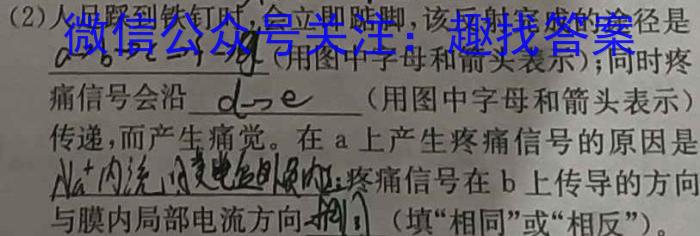 (2)人足踩到铁钉时,会立即跷脚,该反射完成的途径是
微信公众号关注:趣找答案
a→b→c→f→g(用图中字母和箭头表示);同时疼
痛信号会沿 d→e (用图中字母和箭头表示)
传递,而产生痛觉。在a上产生疼痛信号的原因是
Na⁺内流,;疼痛信号在b上传导的方向
与膜内局部电流方向相同(填“相同”或“相反”)。